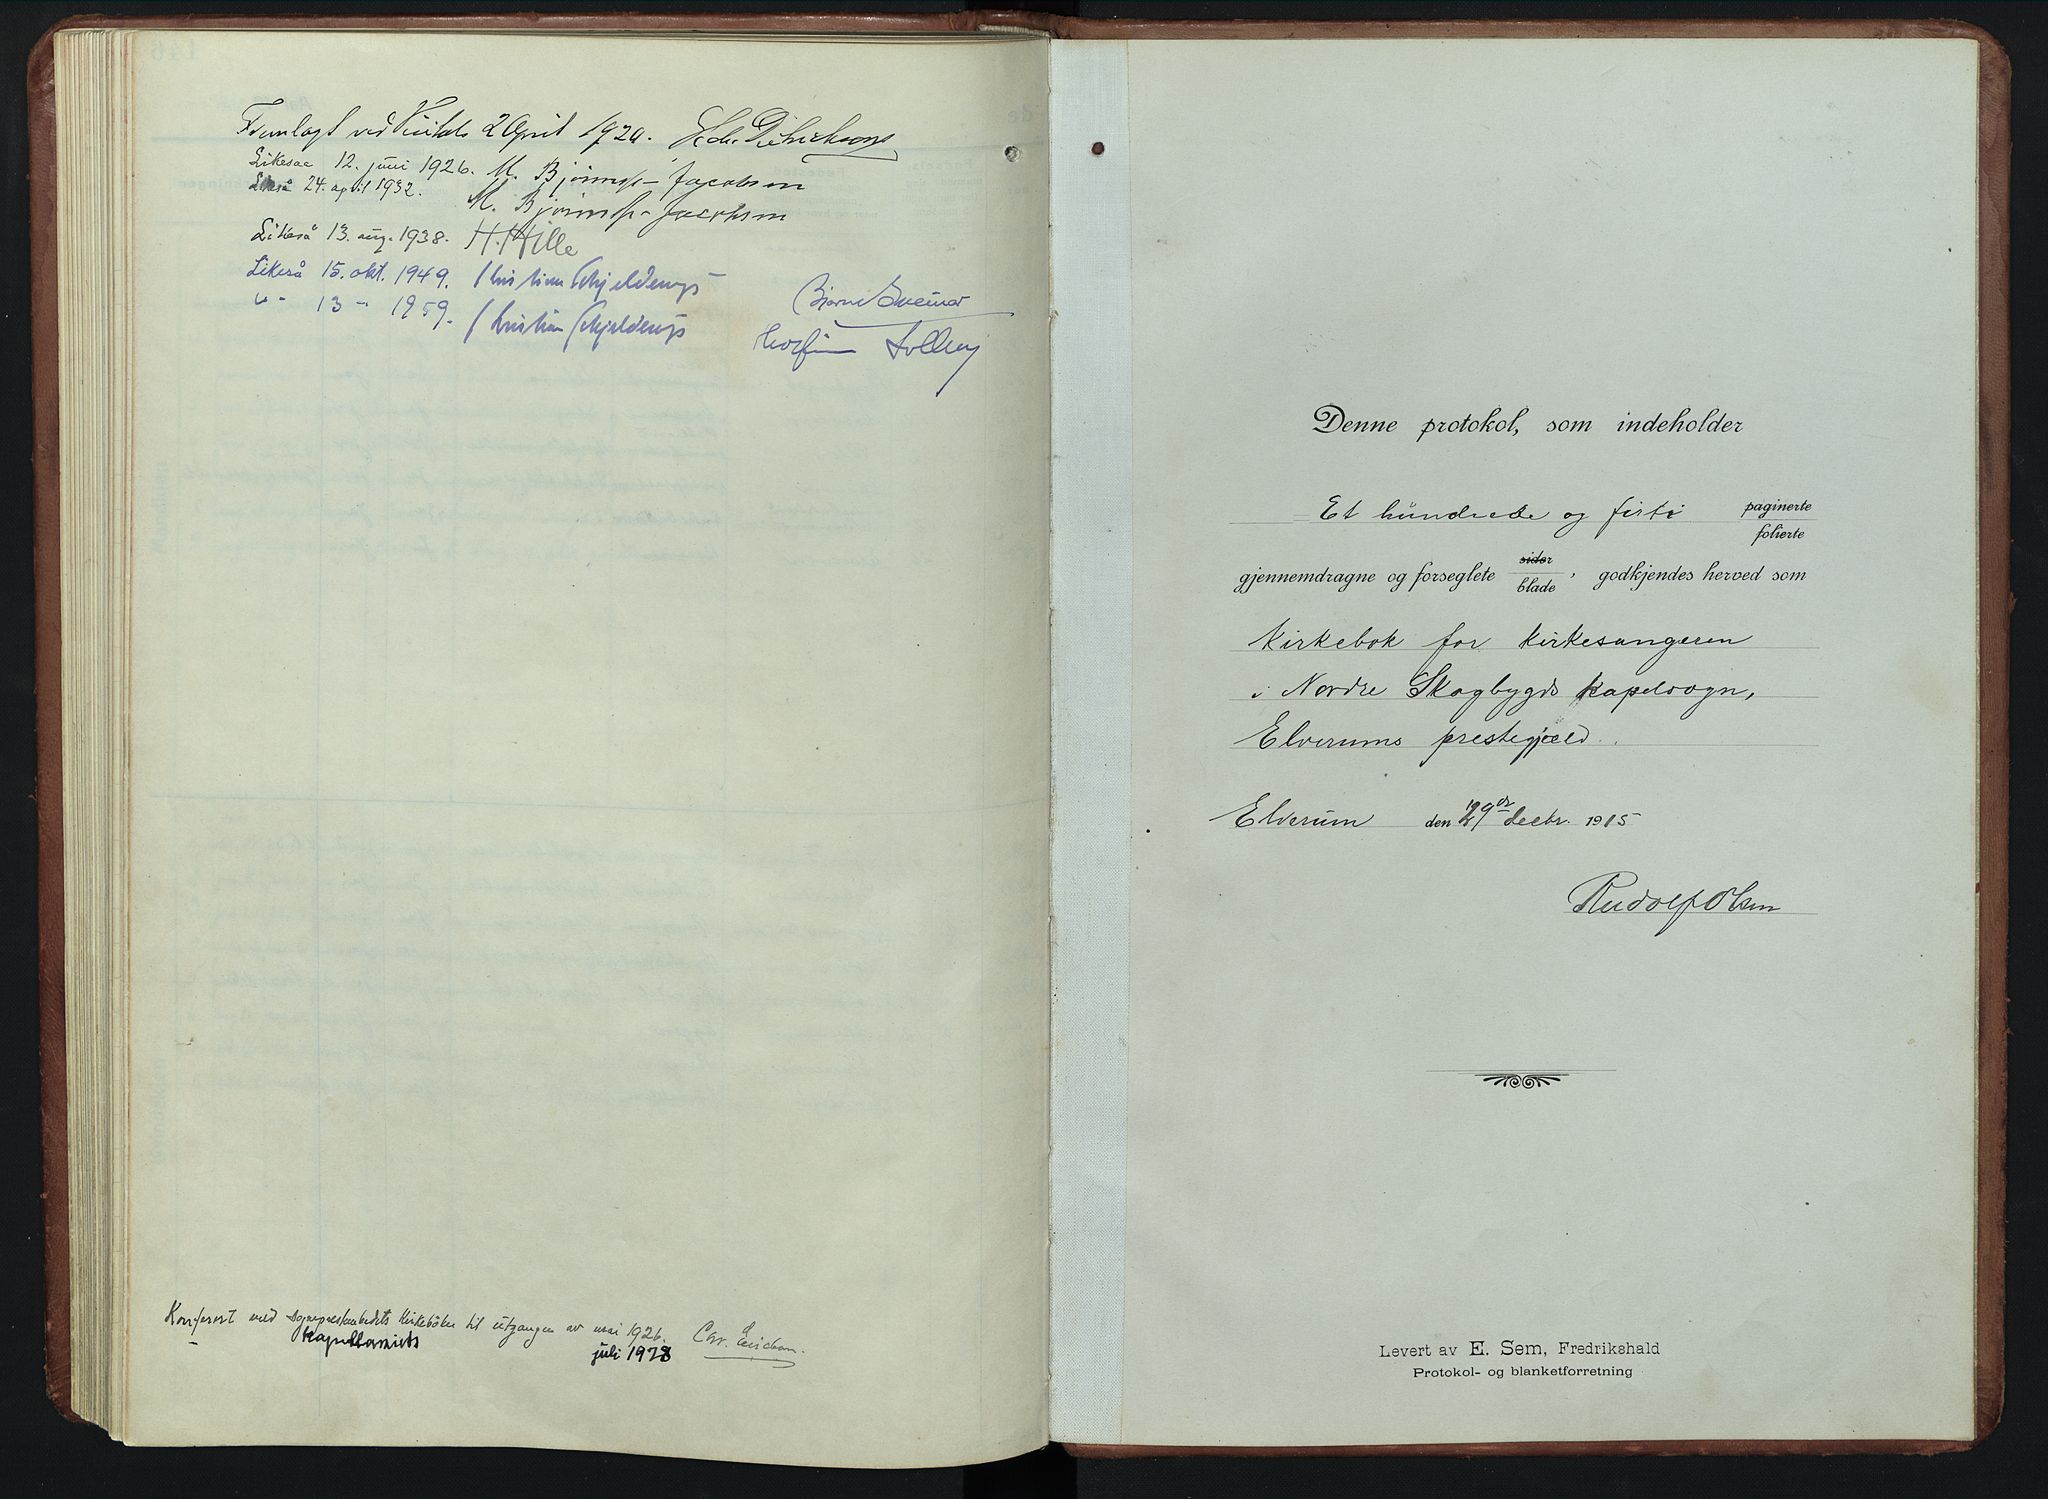 Fremlagt ved Visitds 2 April 1920.
Likesaa 12. juni 1926. M. Bjønnes-Jacobsen
Likeså 24. april 1932.
M. Bjønnes-Jacobsen
Likeså 13. aug. 1938. H. Hille
Likeså 15. okt. 1949. Kristian Schjelderup
"- 13 - 1959. Kristian Schjelderup
Konferert med sogneprestembedets kirkebøker til utgangen av mai 1926. Chr.
Kapellaniets juli 1978
Denne protokol, som indeholder
Et hundrede og firti paginerte
folierte
gjennemdragne og forseglete sider
blade, godkjendes herved som
Kirkebok for kirkesangeren
i Nordre Skogbygds kapelsogn,
Elverums prestegjæld.
Elverum den 29de decbr. 1915
Rudolf Olsen
Levert av E. Sem, Fredrikshald
Protokol- og blanketforretning